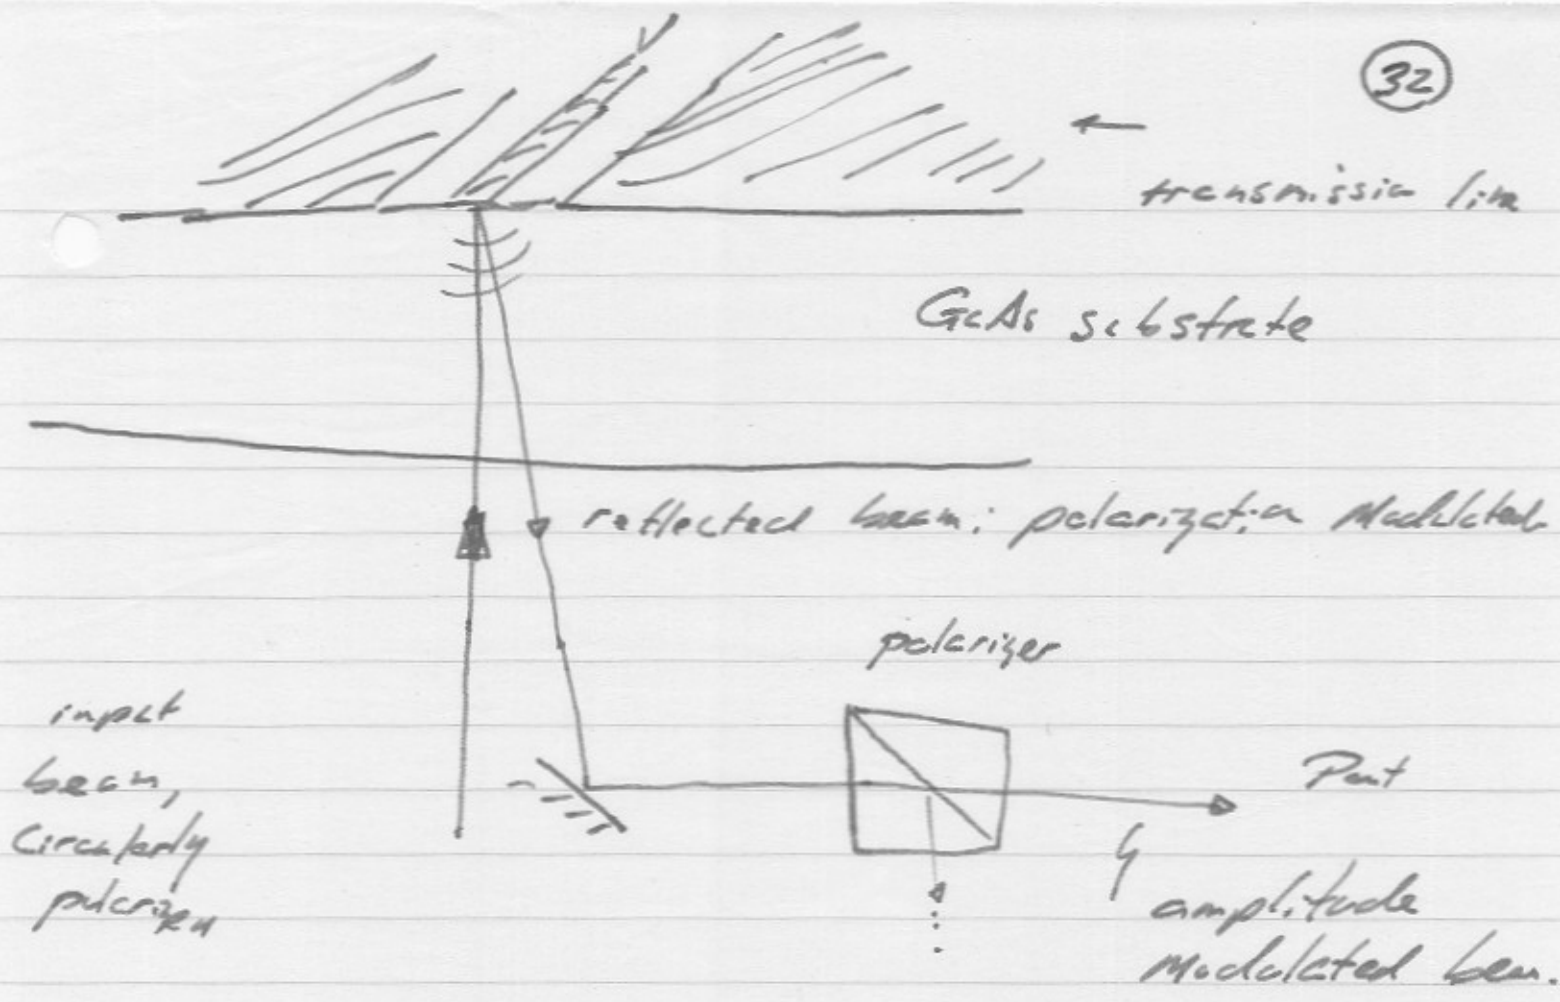 32
transmission line
GaAs substrate
reflected beam: polarization modulated
polarizer
input
beam,
Circularly
polarized
Pout
amplitude
modulated beam.